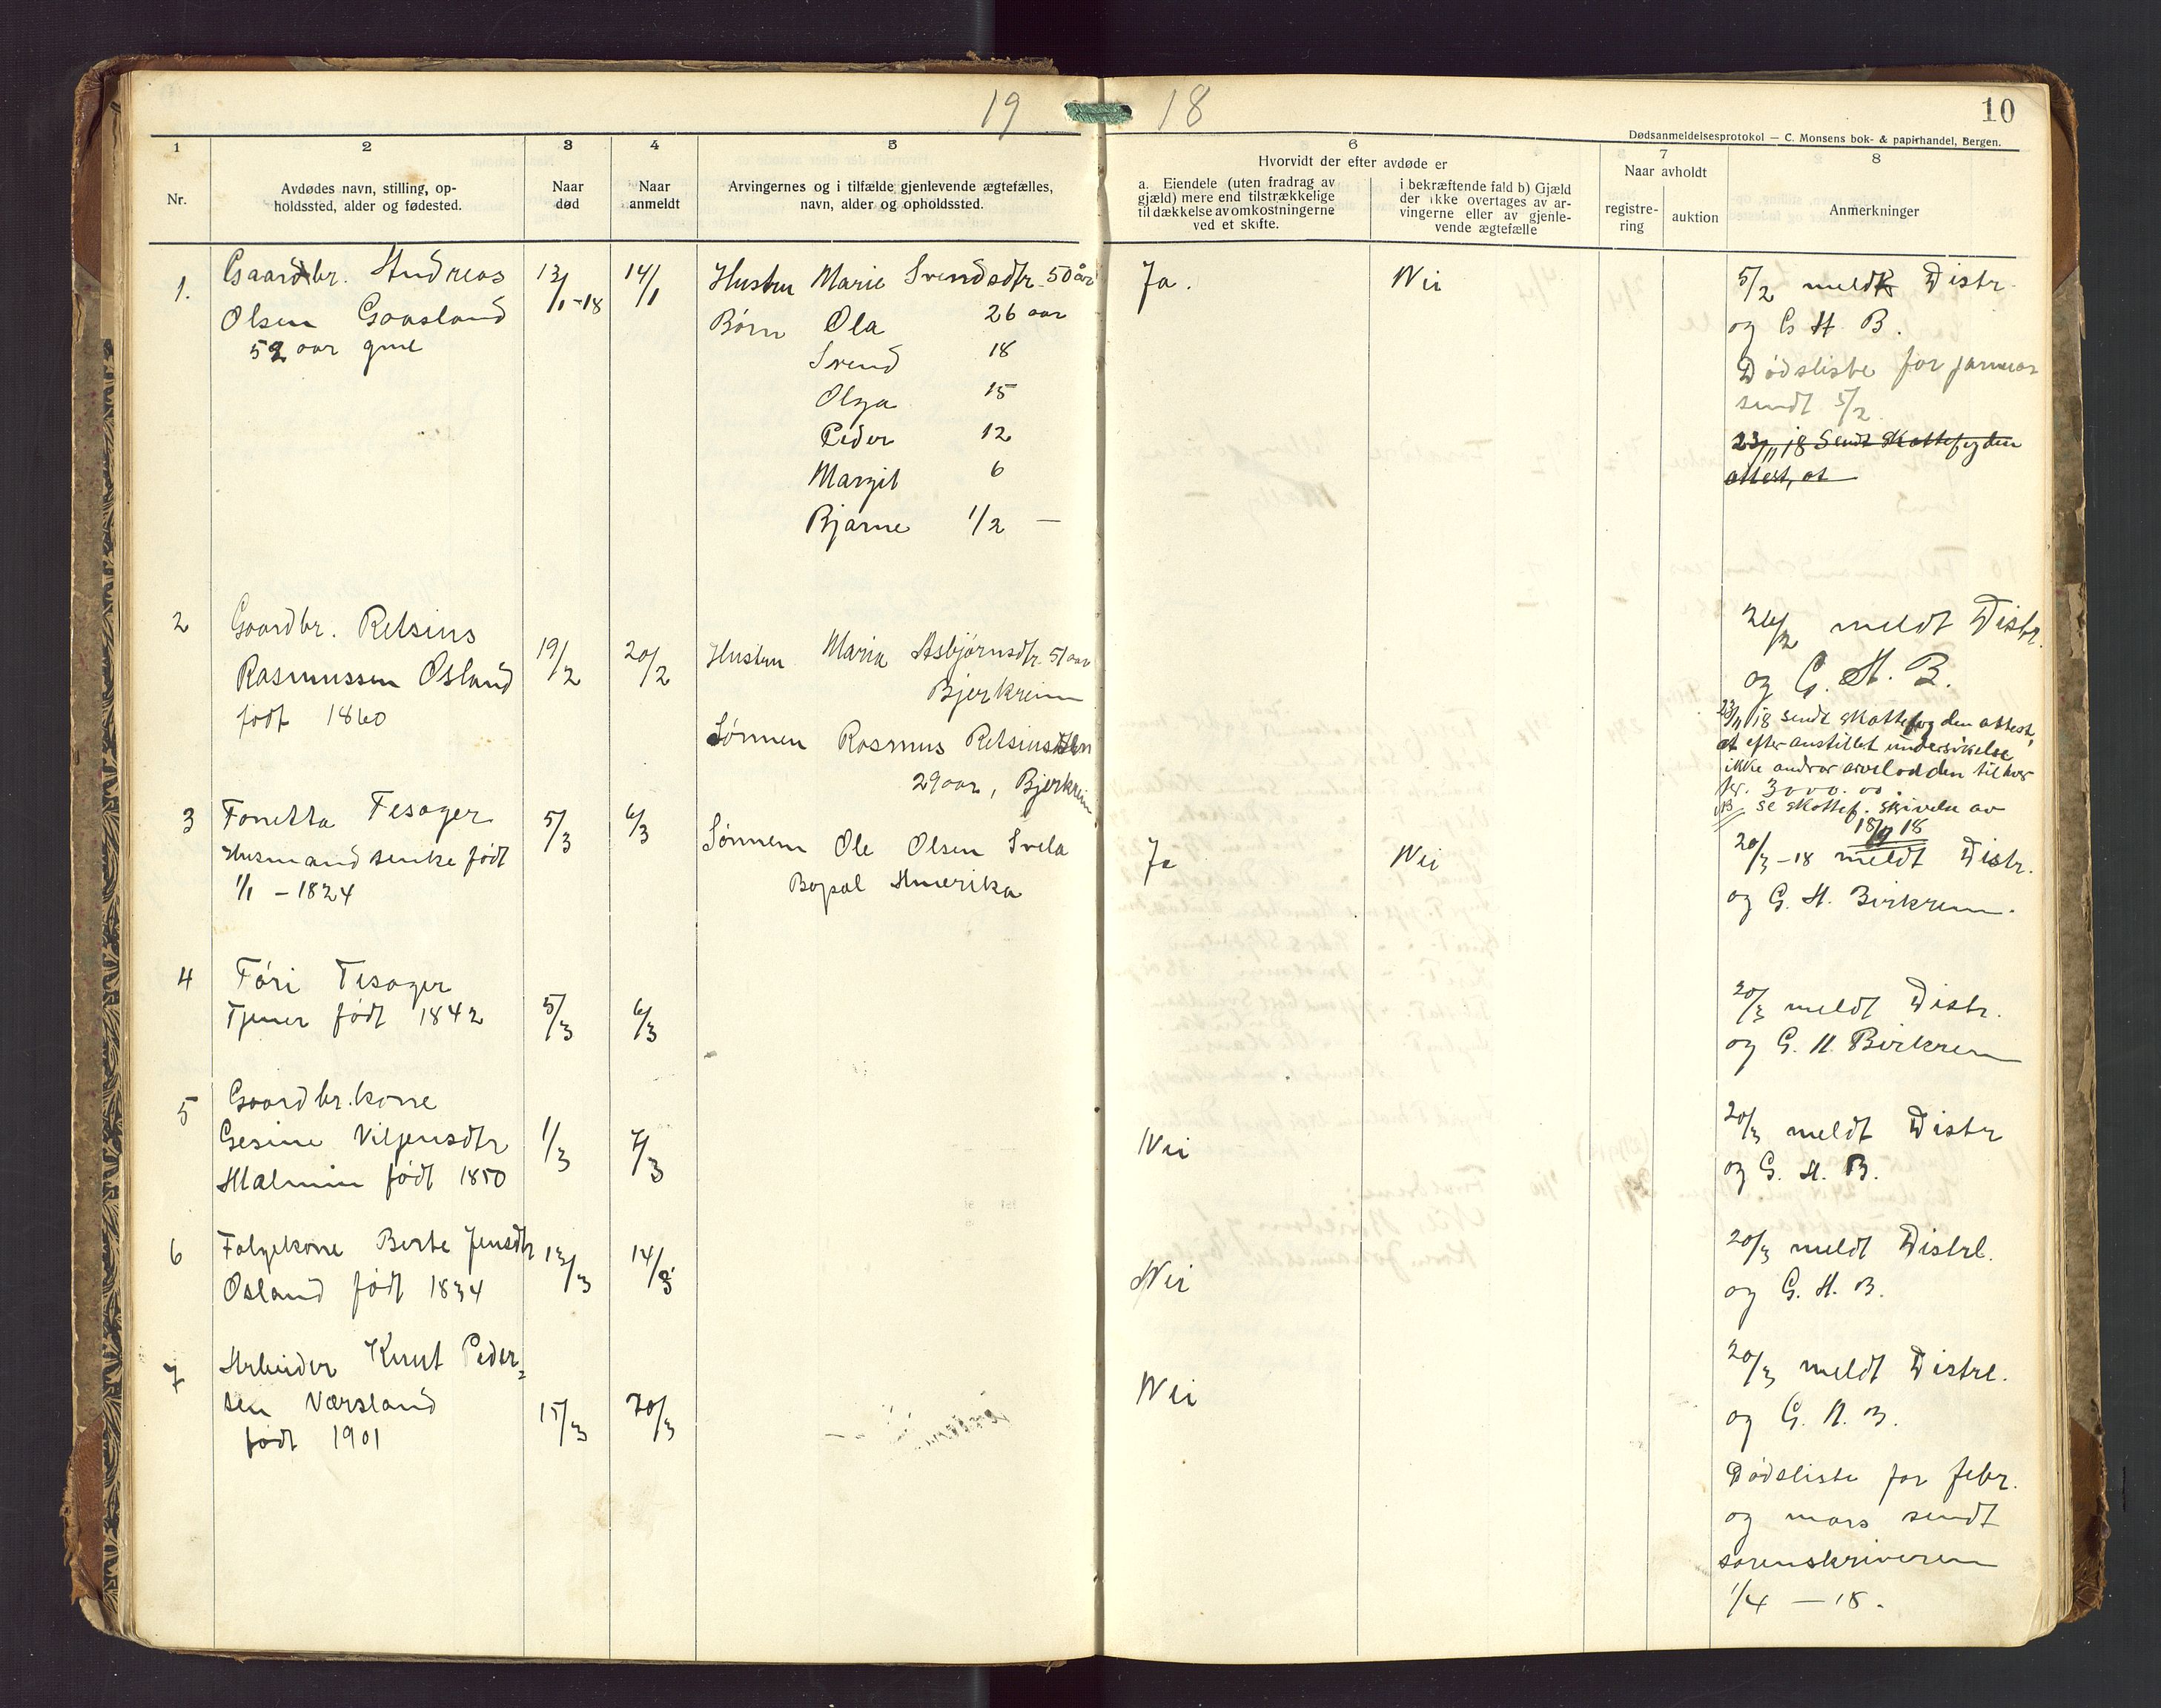 19 18
10
Dødsanmeldelsesprotokol — C. Monsens bok- & papirhandel, Bergen.
1 2 3 4 5 6 7 8
Nr.
Avdødes navn, stilling, op-
holdssted, alder og fødested.
Naar
død
Naar
anmeldt
Arvingernes og i tilfælde gjenlevende ægtefælles,
navn, alder og opholdssted.
Hvorvidt der efter avdøde er
a. Eiendele (uten fradrag av
gjæld) mere end tilstrækkelige
til dækkelse av omkostningerne
ved et skifte.
i bekræftende fald b) Gjæld
der ikke overtages av ar-
vingerne eller av gjenle-
vende ægtefælle
Naar avholdt
registre-
ring
auktion
Anmerkninger
1. Gaardbr. Andreas
Olsen Gaasland
52 aar gml
13/1-18
14/1
Hustru Marie Svendsdtr. 50 år
Børn Ola 26 aar
Svend 18
Olga 15
Peder 12
Margit 6
Bjarne 1/2 —
Ja.
Nei
5/2 meldt Distr.
og G H B.
Dødsliste for januar
sendt 5/2.
23/11 18 Sendt Skattefogden
attest, at
2 Gaardbr. Retsius
Rasmussen Osland
født 1860
19/2
20/2
Hustru Maria Asbjørnsdtr. 51 aar
Bjerkreim
Sønnen Rasmus Retsius
29 aar, Bjerkreim
26/2 meldt Distr.
og G. H. B.
23/11 18 sendt skattefogden attest,
at efter anstillet undersøkelse
ikke andrar arvelodden til hver
kr. 3000.00.
NB se skattef. skrivelse av
18/11 18
3 Tonetta Tesager
Husmandsenke født
1/1 - 1824
5/3
6/3
Sønnen Ole Olsen Svela
Bopæl Amerika
Ja
Nei
20/3 - 18 meldt Distr.
og G. H. Birkrem.
4 Tøri Tesager
Tjener født 1842
5/3
6/3
20/3 meldt Distr.
og G. H. Birkrem
5 Gaardbr.kone
Gesine Viljensdtr
Malmin født 1850
1/3
7/3
Nei
20/3 meldt Distr
og G. H. B.
6 Folgekone Berte Jensdtr
Osland født 1834
13/3
14/3
Nei
20/3 meldt Distrl.
og G. H. B.
7 Arbeider Knut Peder=
sen Værsland
født 1901
15/3
20/3
Nei
20/3 meldt Distrl.
og G. H. B.
Dødsliste for febr.
og mars sendt
sorenskriveren
1/4 - 18.